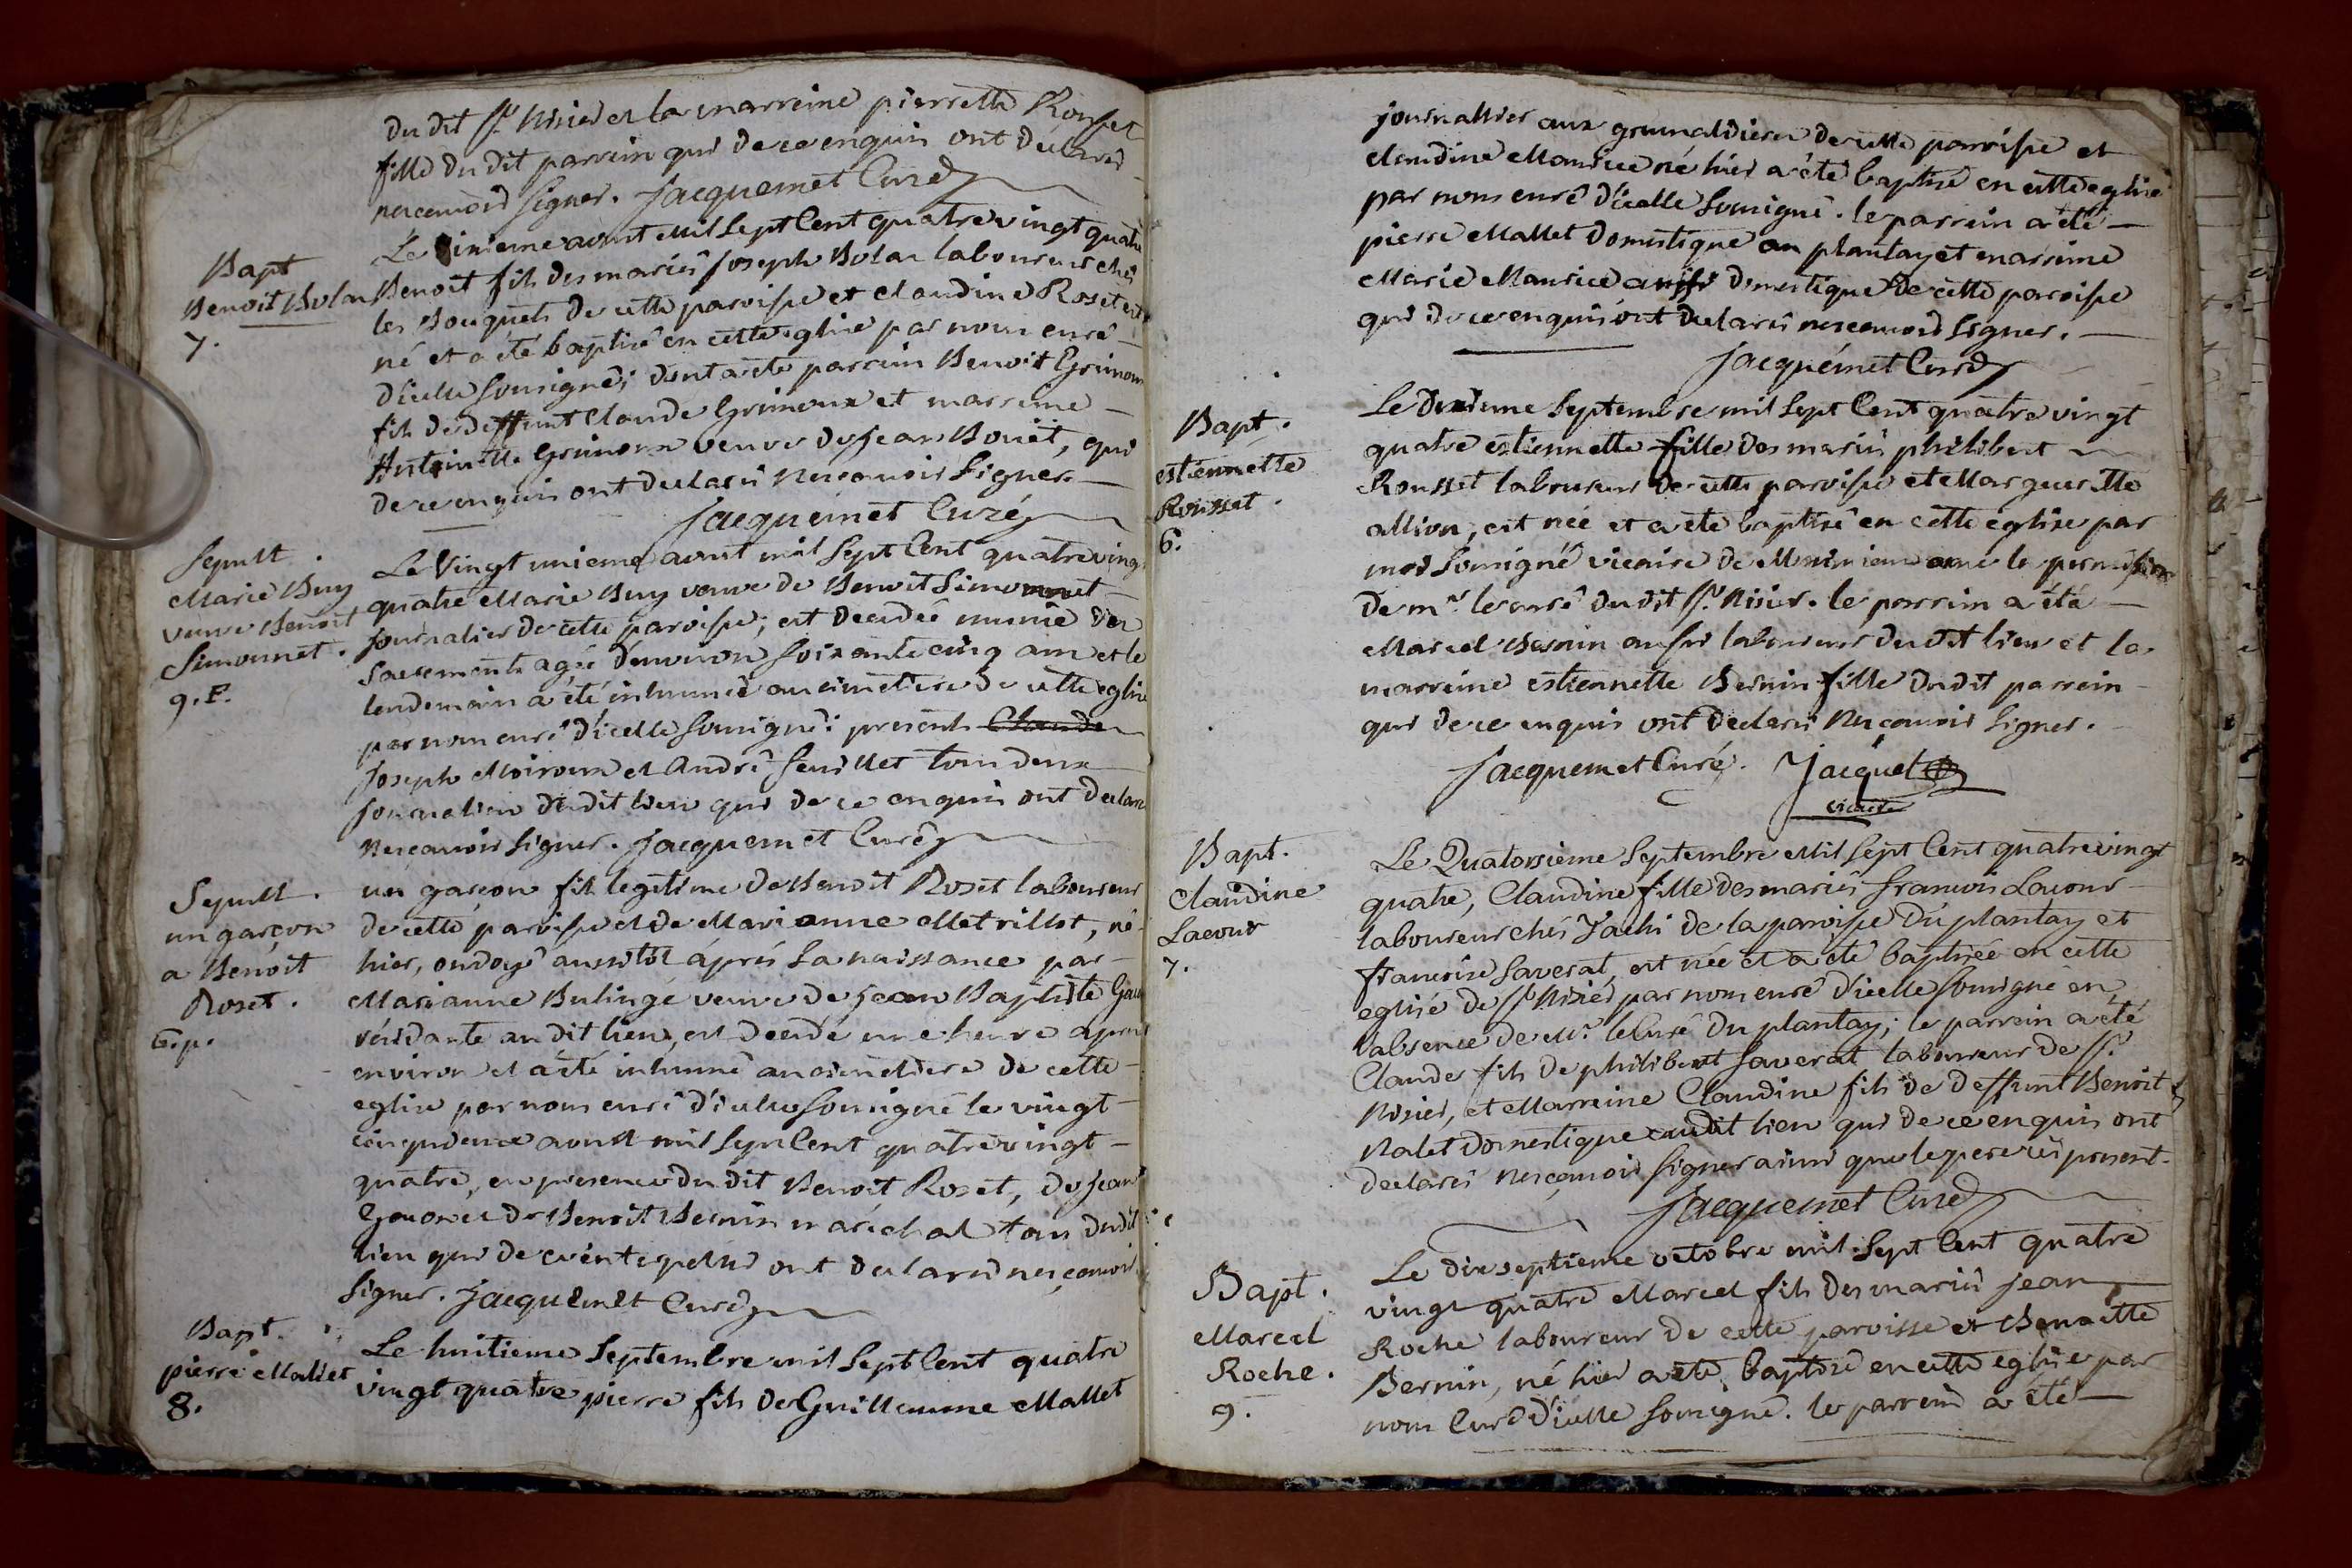 du dit St. Nisier et la marreine pierrette Rousset
fille du dit parrein qui de ce enquis ont déclaré
ne scavoir signer. Jacquemet Curé
Bapt
Benoit Bolas
7.
Le sixieme aoust mil sept Cent quatre vingt quatre
Benoit fils des mariés joseph Bolas laboureur chés
les Bouquets de cette paroisse et claudine Roset est
né et a été baptisé en cette eglise par nous curé
d'icelle soussigné; dont a été parrein Benoit Grimoux
fils de deffunt Claude Grimoux et marreine
Antoinette Grimoux veuve de jean Bouët, qui
de ce enquis ont declarés ne scavoir signer.
Jacquemet Curé
Sepult.
Marie Buy
veuve Benoit
Simonnet.
9. F.
Le Vingt unieme aout mil sept Cent quatre vingt
quatre Marie Buy veuve de Benoit Simonnet
journalier de cette paroisse; est decedée munie des
sacrements agée d'environ soixante cinq ans et le
lendemain a été inhumée au cimetiere de cette eglise
par nous curé d'icelle soussigné: presents Claude
Joseph Moiroux et André feuillet tous deux
journaliers du dit lieu qui de ce enquis ont declaré
ne scavoir signer. Jacquemet Curé
Sepult.
un garçon
a Benoit
Roset.
G. p.
un garçon fils legitime de Benoit Roset laboureur
de cette paroisse et de Marianne Metrillot, né
hier, ondoyé aussitôt après sa naissance par
Marianne Bulinge veuve de jean Baptiste
résidante au dit lieu, est decedé une heure apres
environ et a été inhumé au cimetiere de cette
eglise par nous curé d'icelle soussigné le vingt
aoust mil sept Cent quatre vingt
quatre, en presence du dit Benoit Roset, de jean
et de Benoit Bernin maréchal tous du dit
lieu qui de ce ont declaré ne scavoir
signer. Jacquemet Curé
Bapt.
pierre Mallet
8.
Le huitieme Septembre mil sept Cent quatre
vingt quatre pierre fils de Guillaume Mallet
journallier aux grimaldieres de cette paroisse et
claudine Maurice né hier a été baptisé en cette eglise
par nous curé d'icelle soussigné. le parrein a été
pierre Mallet domestique au plantay et marreine
Marie Maurice aussi domestique de cette paroisse
qui de ce enquis ont declarés ne scavoir signer.
Jacquemet Curé
Bapt.
estiennette
Rousset.
6.
Le dixieme Septembre mil sept Cent quatre vingt
quatre estiennette fille des mariés philibert
Rousset laboureur de cette paroisse et Margueritte
allion, est née et a été baptisé en cette église par
moi soussigné vicaire de avec la permission
de mr. le curé du dit St. Nisier. le parrein a été
Marcel Bernin aussi laboureur du dit lieu et la
marreine estiennette Bernin fille du dit parrein
qui de ce enquis ont declarés ne scavoir signer.
Jacquemet Curé. Jacquet
vicaire
Bapt.
Claudine
Lacour
7.
Le Quatorsieme Septembre Mil sept Cent quatre vingt
quatre, Claudine fille des mariés francois Lacour
laboureur chés Jachi de la paroisse du plantay et
francoise Saverat, est née et a été baptisée en cette
eglise de St. Nisier par nous curé d'icelle soussigné en
l'absence de Mr. le Curé du plantay; le parrein a été
Claude fils de philibert Saverat laboureur de St.
Nisier, et Marreine Claudine fils de deffunt Benoit
Nalet domestique audit lieu qui de ce enquis ont
declarés ne scavoir signer ainsi que le pere ici present.
Jacquemet Curé
Bapt.
Marcel
Roche.
9.
Le dix septieme octobre mil sept Cent quatre
vingt quatre Marcel fils des mariés jean
Roche laboureur de cette paroisse et Benoitte
Bernin, né hier a été baptisé en cette eglise par
nous Curé d'icelle soussigné. le parrein a été